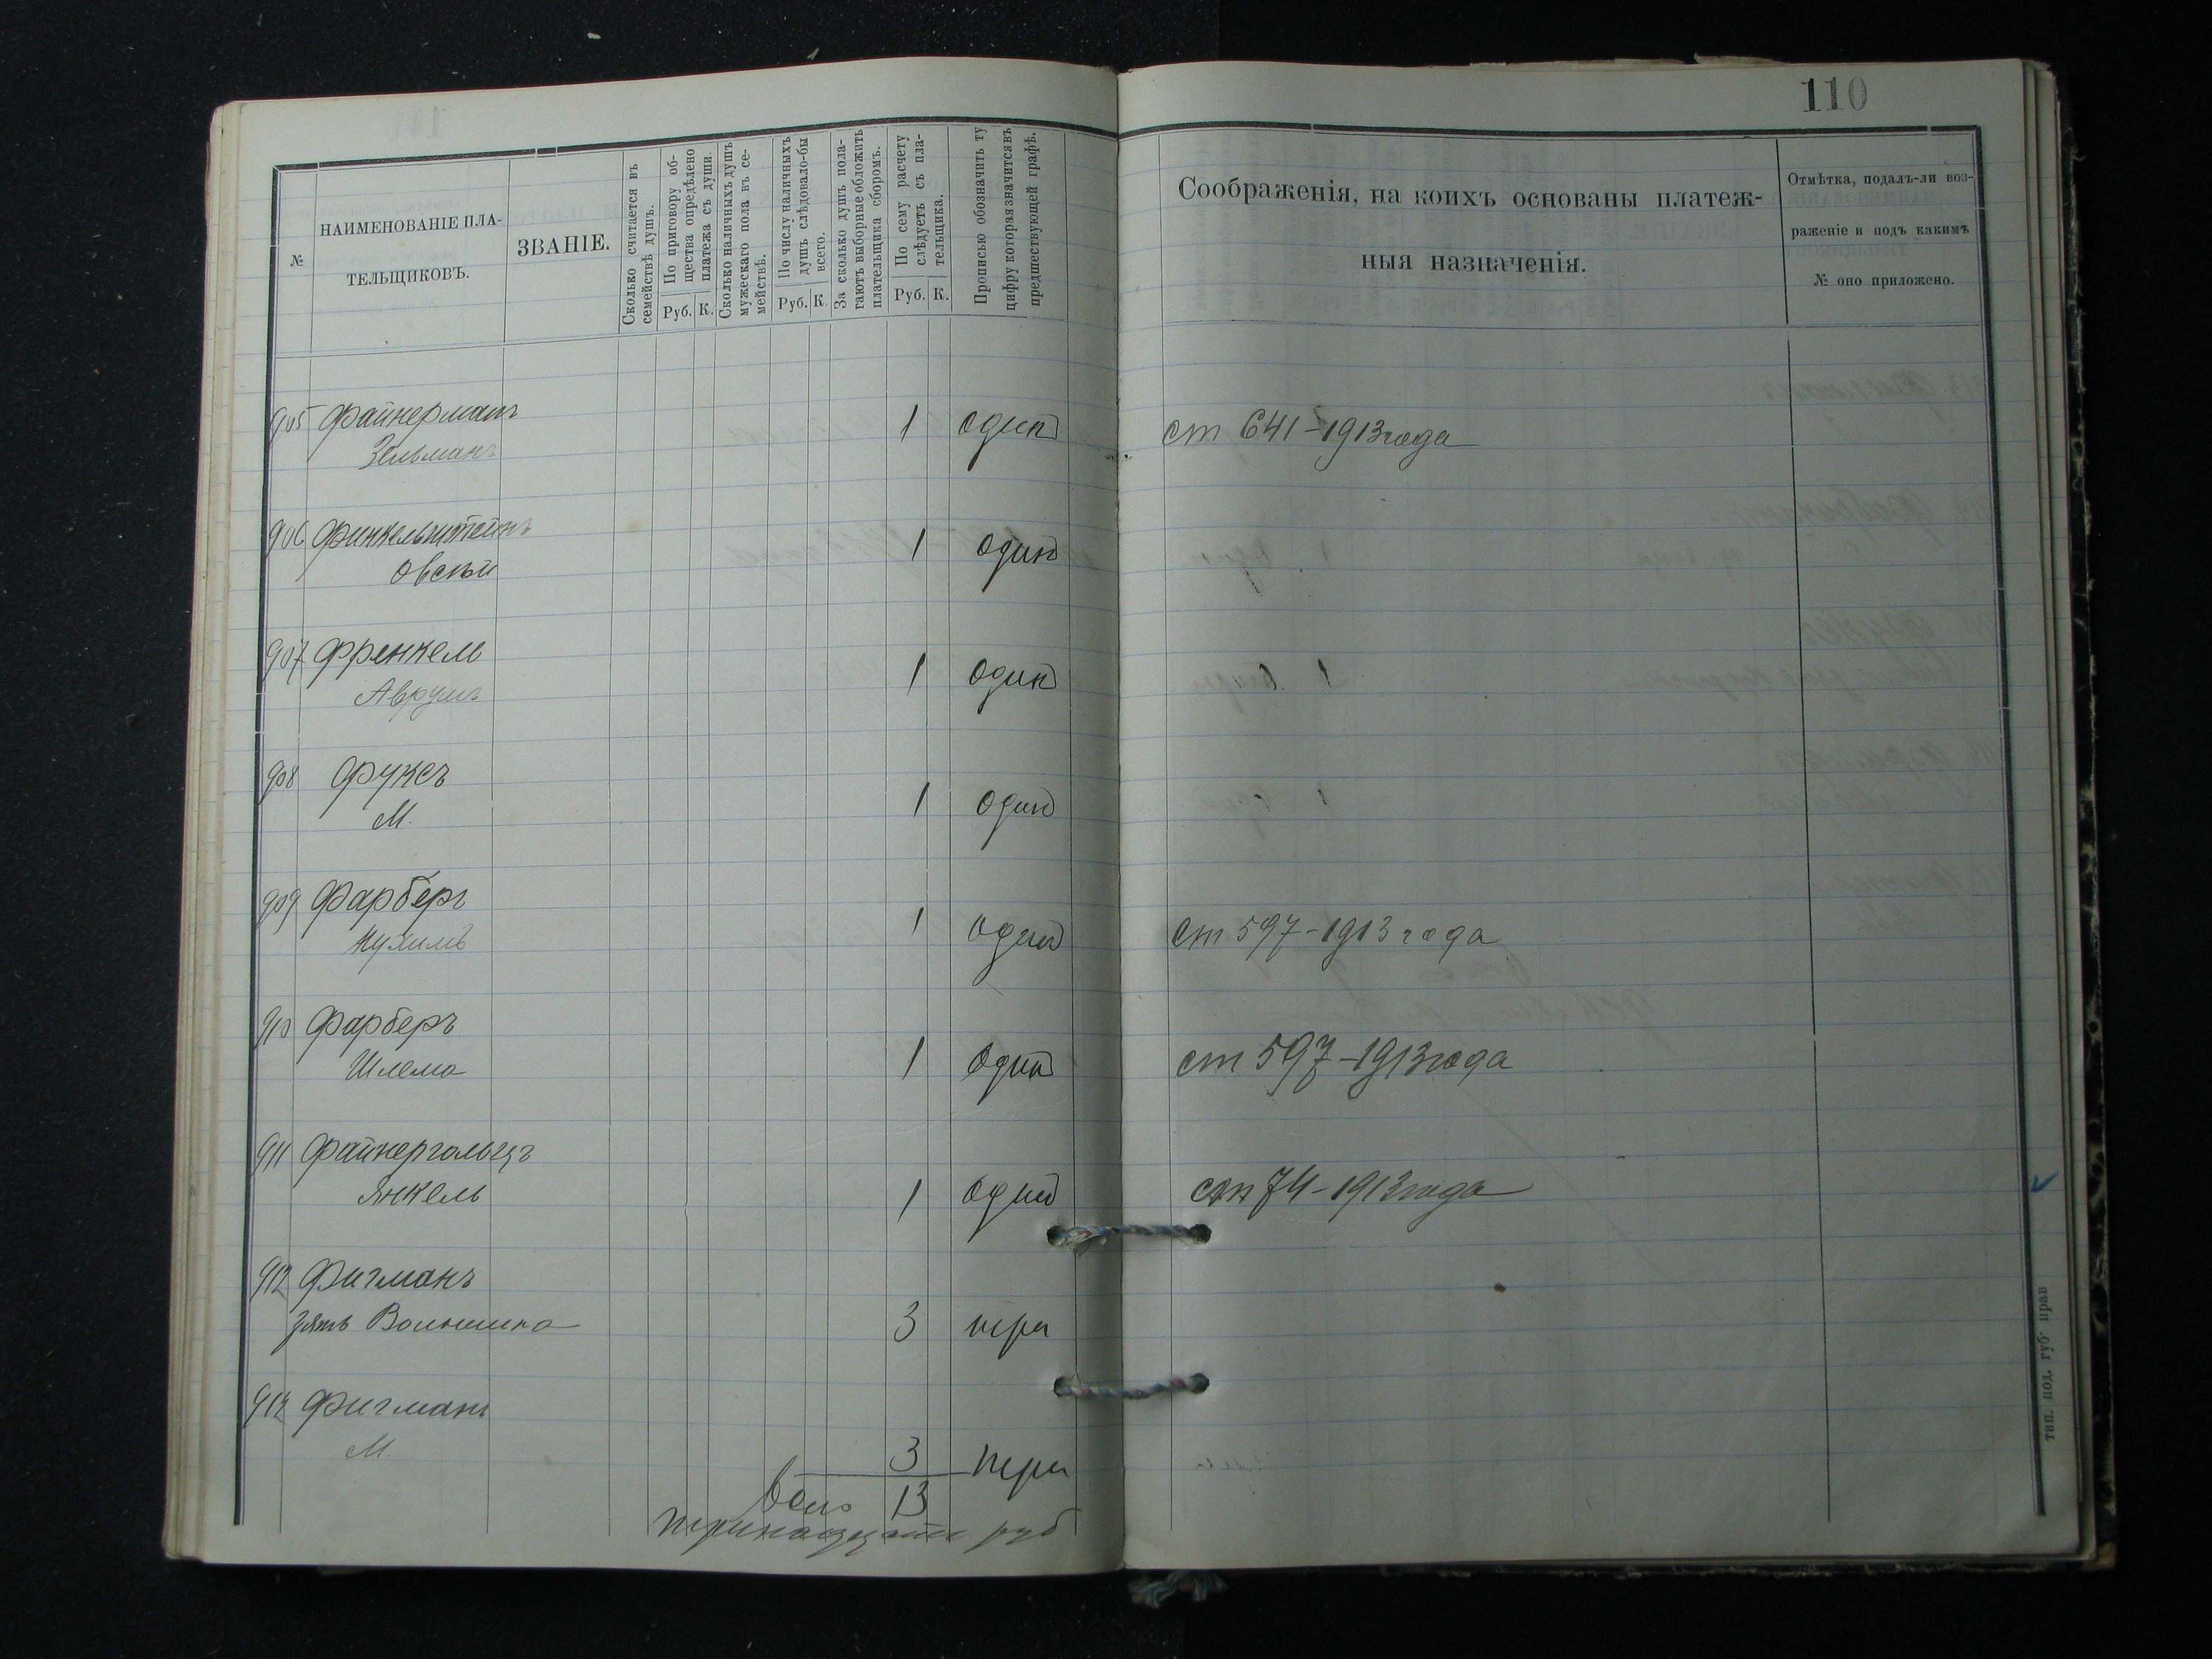 110
№
НАИМЕНОВАНІЕ ПЛА-
ТЕЛЬЩИКОВЪ.
ЗВАНІЕ.
Сколько считается въ
семействѣ душъ.
По приговору об-
щества опредѣлено
платежа съ души.
Руб. К.
Сколько наличныхъ душъ
мужескаго пола въ се-
мействѣ.
По числу наличныхъ
душъ слѣдовало-бы
всего.
Руб. К.
За сколько душъ пола-
гаютъ выборные обложить
плательщика сборомъ.
По сему расчету
слѣдуетъ съ пла-
тельщика.
Руб. К.
Прописью обозначить ту
цифру которая значится въ
предшествующей графѣ.
Соображенія, на коихъ основаны платеж-
ныя назначенія.
Отмѣтка, подалъ-ли воз-
раженіе и подъ какимъ
№ оно приложено.
905 Файнерманъ 1 один ст 641-1913 года
Зельманъ
906 Финкельштейнъ 1 один
Овсѣй
907 Френкель 1 один
Аврумъ
908 Фуксъ 1 один
М.
909 Фарберъ 1 один ст 597-1913 года
Нухимъ
910 Фарберъ 1 один ст 597-1913 года
Шлема
911 Файнергольцъ 1 один ст 74-1913 года
Янкель
912 Фигманъ
зять 3 три
Фигманъ
М. 3 три
всего 13
тринадцать руб
тип. под. губ. прав